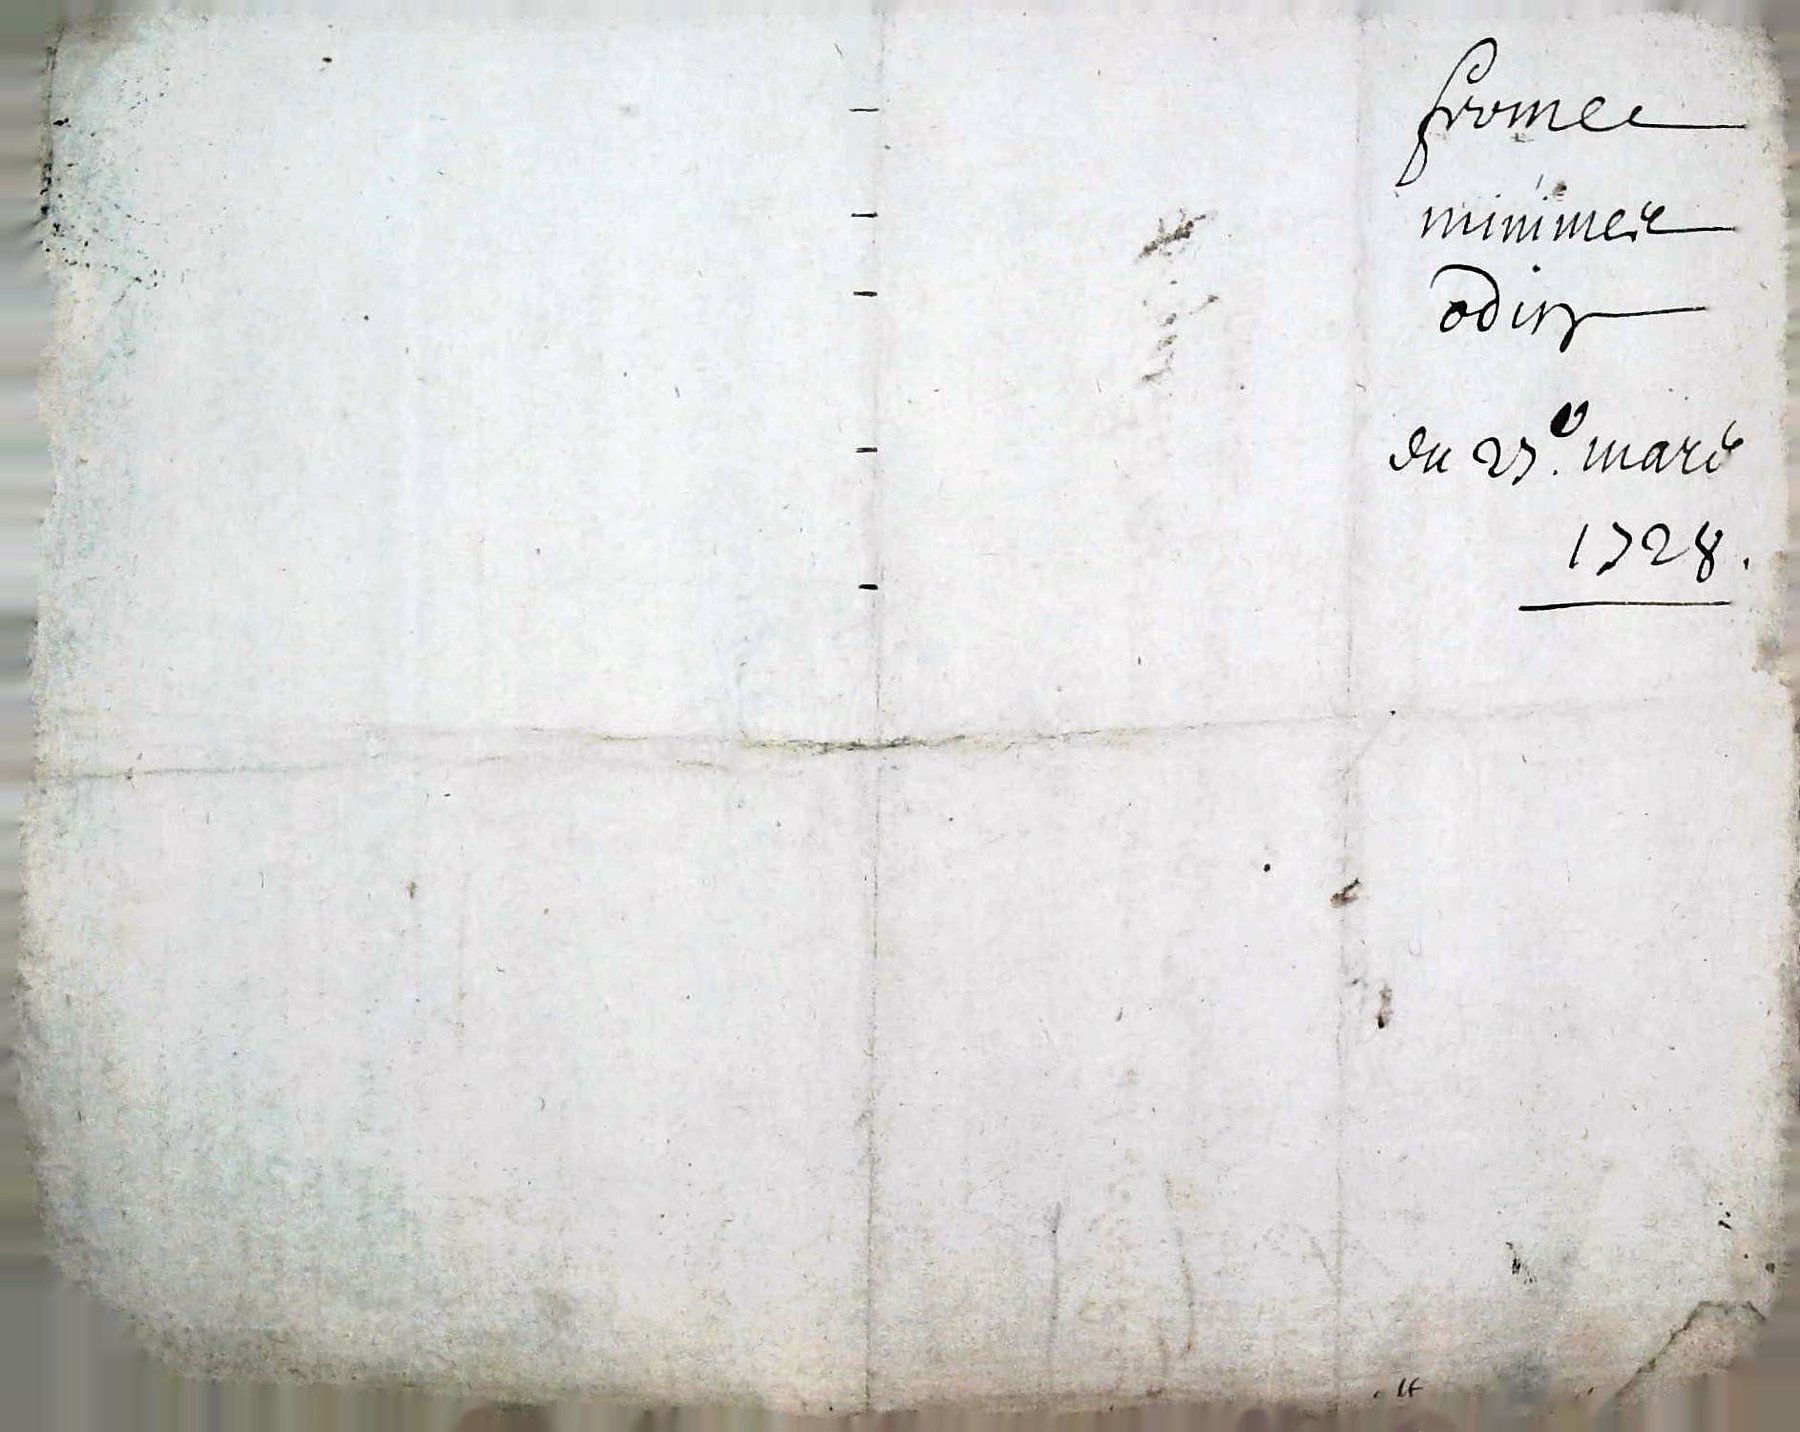 fromee
minimes
odin
du 27e. mars
1728.